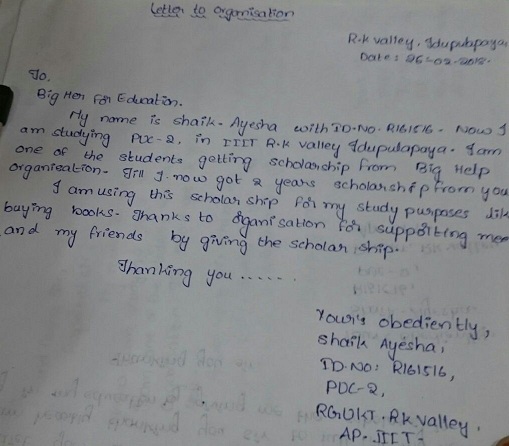 Letter to organisation
R.k valley, Idupulapaya,
Date : 26-02-2018.
To,
Big Her For Education.
My name is shaik. Ayesha with ID.NO. R161516. Now I
am studying PUC-2, in IIIT R.k valley Idupulapaya. I am
one of the students getting scholarship from Big Help
organisation. Till I now got 2 years scholarship from you
I am using this scholar ship for my study purpases lik
buying books. Thanks to oganisation for suppolting mee
and my friends by giving the scholar ship.
Thanking you ......
Your's obediently,
shaik Ayesha,
ID.NO: R161516,
PUC-2,
RGUKT. R.k valley,
AP. IIIT.